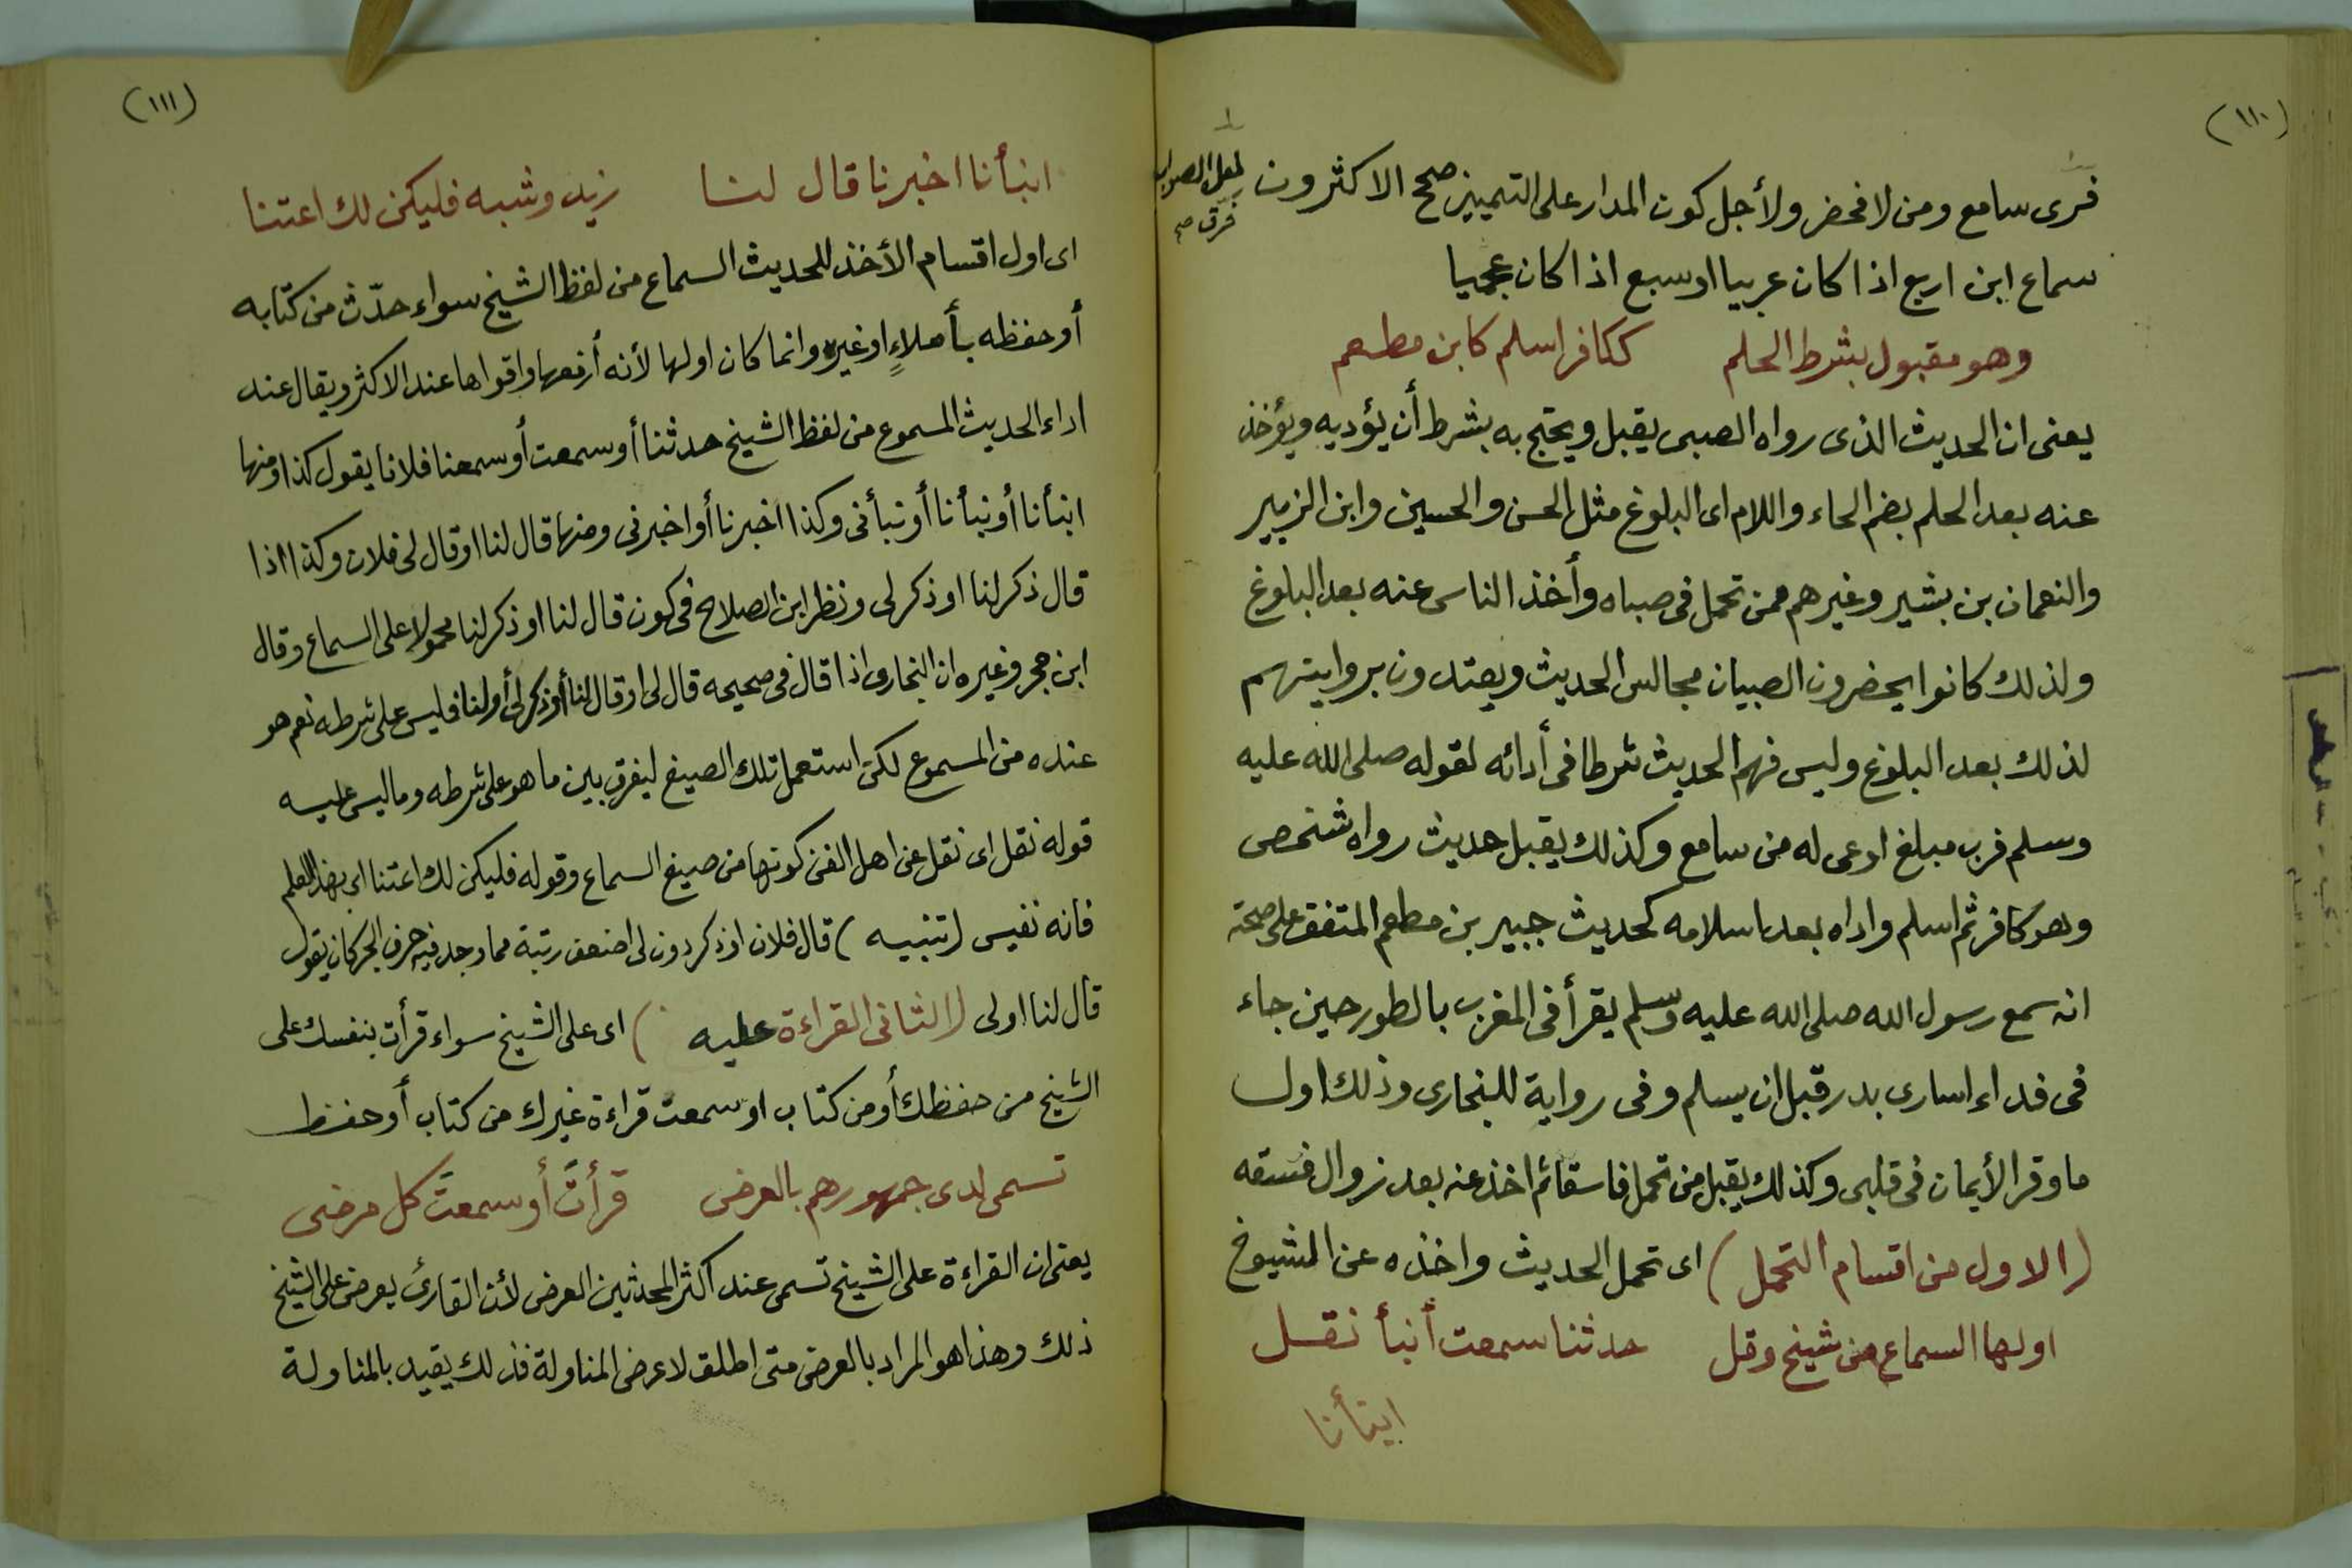 (١١٠)
فرى سامع ومن لا فحضر ولأجل كون المدار على التمييز صحح الاكثرون
لعل الصواب
فرق صح
سماع ابن اربع اذا كان عربيا او سبع اذا كان عجميا
وهو مقبول بشرط الحلم ككافر اسلم كابن مطعم
يعنى ان الحديث الذى رواه الصبى يقبل ويحتج به بشرط أن يؤديه ويؤخذ
عنه بعد الحلم بضم الحاء واللام اى البلوغ مثل الحسن والحسين وابن الزبير
والنعمان بن بشير وغيرهم ممن تحمل فى صباه وأخذ الناس عنه بعد البلوغ
ولذلك كانوا يحضرون الصبيان مجالس الحديث ويعتدون بروايتهم
لذلك بعد البلوغ وليس فهم الحديث شرطا فى أدائه لقوله صلى الله عليه
وسلم فرب مبلغ اوعى له من سامع وكذلك يقبل حديث رواه شخص
وهو كافر ثم اسلم واداه بعد اسلامه كحديث جبير بن مطعم المتفق على صحته
انه سمع رسول الله صلى الله عليه وسلم يقرأ فى المغرب بالطور حين جاء
فى فداء اسارى بدر قبل ان يسلم وفى رواية للبخارى وذلك اول
ما وقر الأيمان فى قلبى وكذلك يقبل من تحمل فاسقا ثم اخذ عنه بعد زوال فسقه
(الاول من اقسام التحمل) اى تحمل الحديث واخذه عن المشيوخ
اولها السماع من شيخ وقل حدثنا سمعت أنبأ نقل
ابنأنا
(١١١)
انبأنا اخبرنا قال لنا زيد وشبه فليكن لك اعتنا
اى اول اقسام الأخذ للحديث السماع من لفظ الشيخ سواء حدّث من كتابه
أو حفظه بأملاءٍ او غيره وانما كان اولها لأنه أرفعها واقواها عند الاكثر ويقال عند
اداء الحديث المسموع من لفظ الشيخ حدثنا أو سمعت أو سمعنا فلانا يقول كذا ومنها
انبأنا أو نبأنا أو نبأنى وكذا اخبرنا أو اخبرنى ومنها قال لنا او قال لى فلان وكذا اذا
قال ذكر لنا او ذكر لى ونظر ابن الصلاح فى كون قال لنا او ذكر لنا محمولا على السماع وقال
ابن حجر وغيره ان البخارى اذا قال فى صحيحه قال لى او قال لنا أو ذكر لى أو لنا فليس على شرطه نعم هو
عنده من المسموع لكن استعمل تلك الصيغ ليفرق بين ما هو على شرطه وما ليس عليه
قوله نقل اى نقل عن اهل الفن كونها من صيغ السماع وقوله فليكن لك اعتنا اى بهذا العلم
فانه نفيس (تنبيه) قال فلان او ذكر دون لى اضعف رتبة مما وجد فيه حرف الجر كان يقول
قال لنا اولى (الثانى القراءة عليه) اى على الشيخ سواء قرأت بنفسك على
الشيخ من حفظك أو من كتاب او سمعت قراءة غيرك من كتاب أو حفظ
تسمى لدى جمهورهم بالعرض قرأتَ أو سمعتَ كل مرضى
يعنى ان القراءة على الشيخ تسمى عند أكثر المحدثين العرض لأن القارئ يعرض على الشيخ
ذلك وهذا هو المراد بالعرض متى اطلق لا عرض المناولة فذلك يقيد بالمناولة